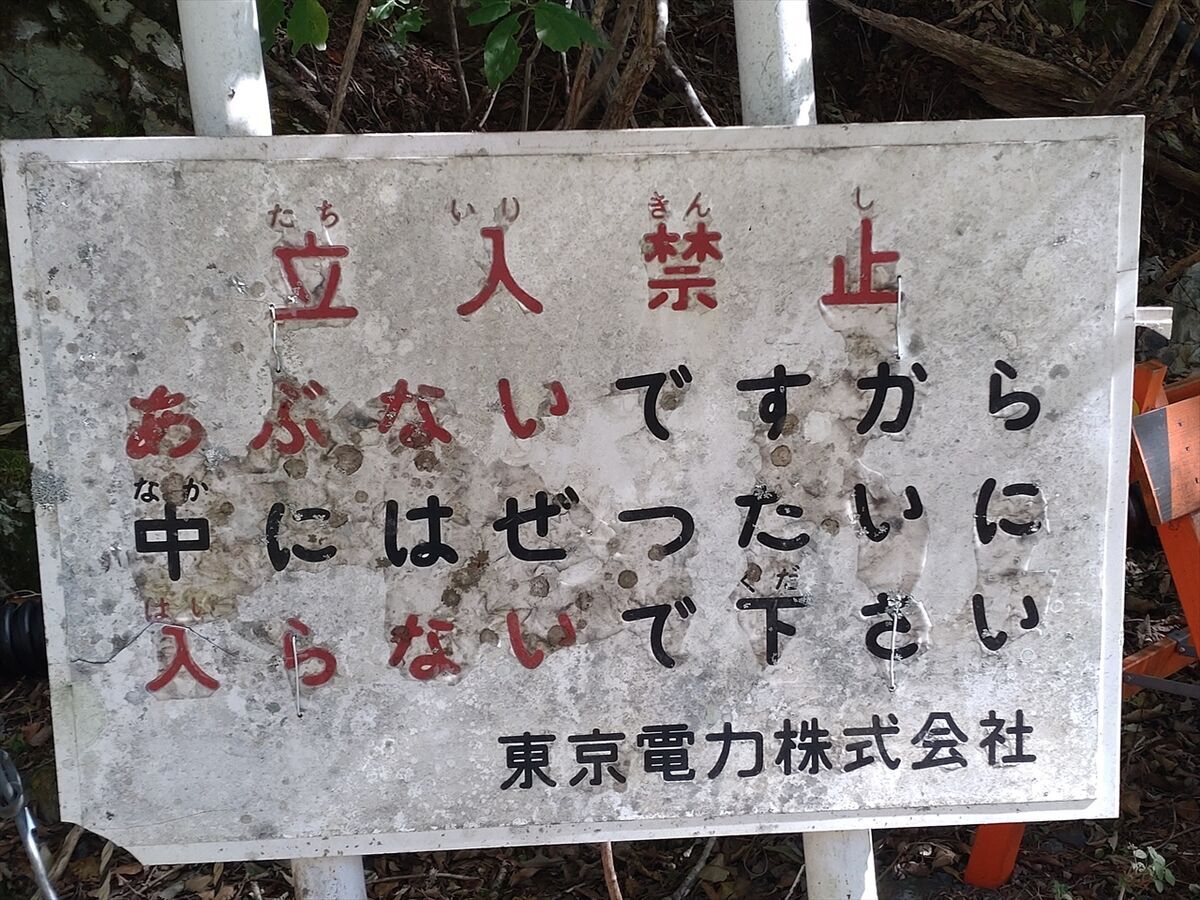 たち いり きん し
立入禁止
あぶないですから
なか
中にはぜったいに
はい くだ
入らないで下さい
東京電力株式会社